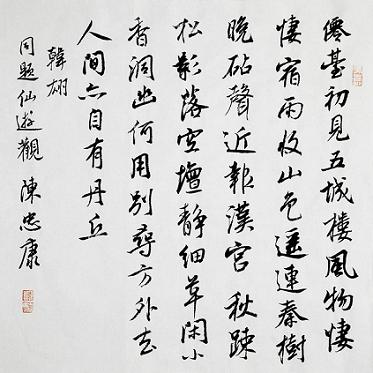 僊臺初見五城樓風物悽
悽宿雨收山色遥連秦樹
晚砧聲近報漢宮秋踈
松影落空壇靜細草閑小
香洞幽何用别尋方外去
人间亦自有丹丘
韓翃
同题仙遊觀 陳忠康